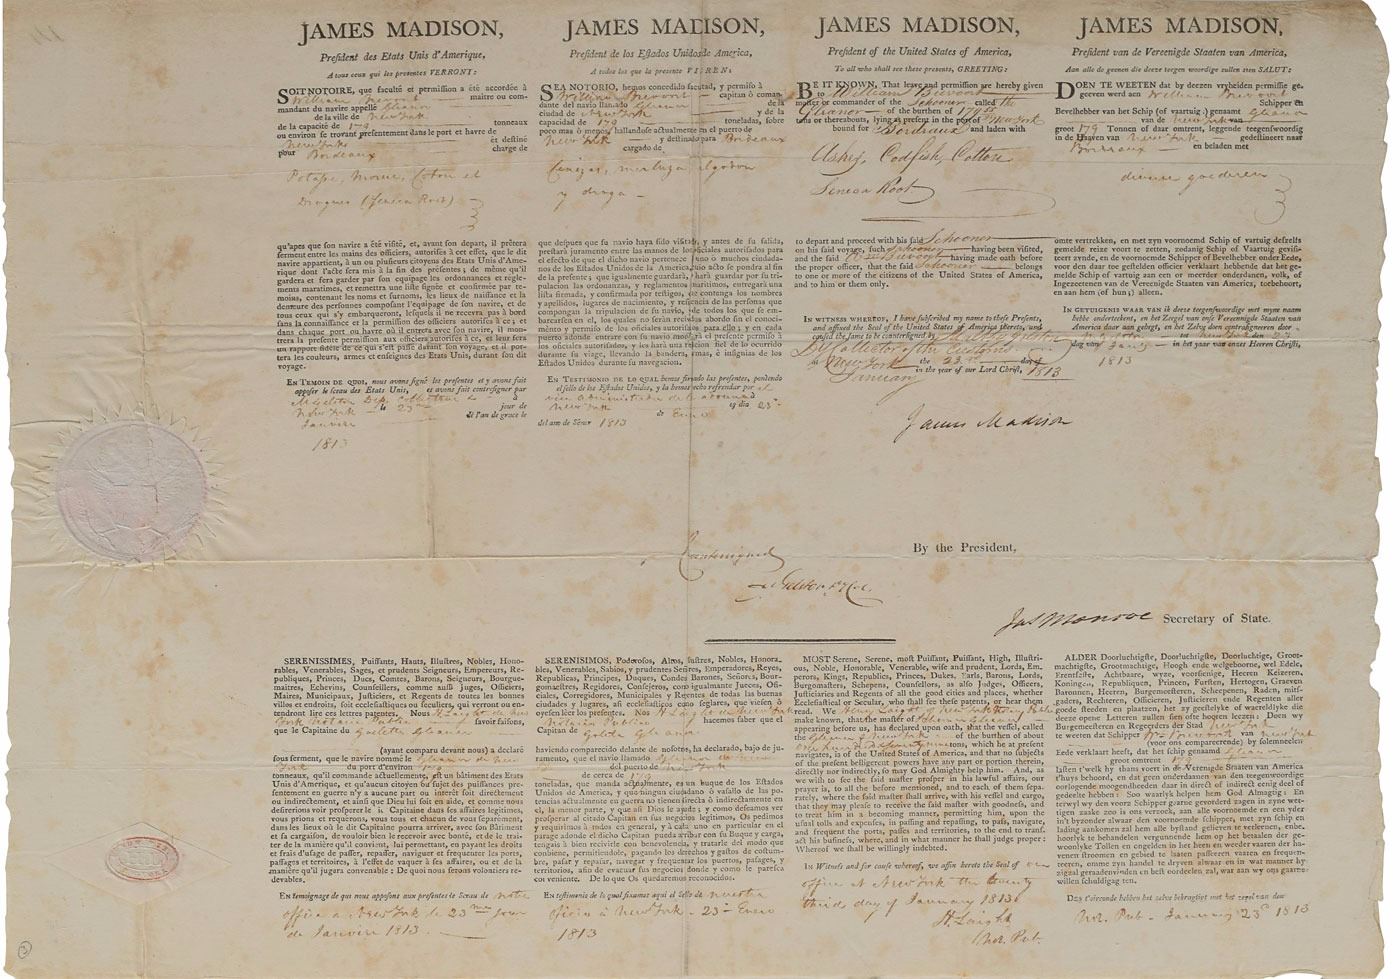 JAMES MADISON,
President des Etats Unis d'Amerique,
A tous ceux qui les presentes VERRONT:
SOIT NOTOIRE, que faculté et permission a été accordée à
maitre ou com-
mandant du navire appellé
de la ville de New York
de la capacité de 179 tonneaux
ou environ se trouvant presentement dans le port et havre de
New York et destiné
pour Bordeaux chargé de
Potasse, Morue, Coton et
Drogues (Seneca Root)
qu'apes que son navire a été visité, et, avant son depart, il prêtera
serment entre les mains des officiers, autorisés à cet effet, que le dit
navire appartient, à un ou plusieurs citoyens des Etats Unis d'Ame-
rique dont l'acte sera mis à la fin des presentes; de même qu'il
gardera et fera garder par son equipage les ordonnances et regle-
ments maritimes, et remettra une liste signée et confirmée par te-
moins, contenant les noms et surnoms, les lieux de naissance et la
demeure des personnes composant l'equipage de son navire, et de
tous ceux qui s'y embarqueront, lesquels il ne recevra pas à bord
sans la connaissance et la permission des officiers autorisés à ce; et
dans chaque port ou havre où il entrera avec son navire, il mon-
trera la presente permission aux officiers autorisés à ce, et leur sera
un rapport fidèle de ce qui s'est passé durant son voyage, et il por-
tera les couleurs, armes et enseignes des Etats Unis, durant son dit
voyage.
EN TEMOIN DE QUOI, nous avons signé les presentes et y avons fait
apposer le sceau des Etats Unis, et avons fait contresigner par
à
New York le 23 jour de
Janvier de l'an de grace le
1813
JAMES MADISON,
President de los Estados Unidos de America,
A todos los que la presente VIEREN:
SEA NOTORIO, hemos concedido facultad, y permiso à
capitan ò coman-
dante del navio llamado de la
ciudad de New York y de la
capacidad de 179 toneladas, sobre
poco mas ò menos, hallandose actualmente en el puerto de
New York y destinado para Bordeaux
cargado de
Cenizas, merluza, algodon
y droga
que despues que su navio haya sido visitado, y antes de su salida,
prestará juramento entre las manos de los oficiales autorisados para
el efecto de que el dicho navio pertenece à uno o muchos ciudada-
nos de los Estados Unidos de la America, cuio acto se pondra al fin
de la presente; que igualmente guardará, y hará guardar por su tri-
pulacion las ordenanzas, y reglamentos maritimos, y entregará una
lista firmada, y confirmada por testigos, que contenga los nombres
y apellidos, lugares de nacimiento, y residencia de las personas que
compongan la tripulacion de su navio, y de todos los que se em-
barcaren en el, los quales no serán recividos abordo sin el conoci-
miento y permiso de los oficiales autorisados para ello; y en cada
puerto adonde entrare con su navio mostrará el presente permisó à
los oficiales autorisados, y les hará una relacion fiel de lo ocurrido
durante su viage, llevando la bandera, armas, è insignias de los
Estados Unidos durante su navegacion.
EN TESTIMONIO DE LO QUAL hemos firmado las presentes, poniendo
el sello de los Estados Unidos, y la hemos echo refrendar por el
New York el dia 23
de Enero
del ano de Senor 1813
JAMES MADISON,
President of the United States of America,
To all who shall see these presents, GREETING:
BE IT KNOWN, That leave and permission are hereby given
to William Brevoort
master or commander of the Schooner called the
Gleanor of the burthen of 179
tons or thereabouts, lying at present in the port of New York
bound for Bordeaux and laden with
Ashes, Codfish, Cotton
Seneca Root
to depart and proceed with his said Schooner
on his said voyage, such Schooner having been visited,
and the said Wm Brevoort having made oath before
the proper officer, that the said Schooner belongs
to one or more of the citizens of the United States of America,
and to him or them only.
IN WITNESS WHEREOF, I have subscribed my name to these Presents,
and affixed the Seal of the United States of America thereto, and
caused the same to be countersigned by
Dy Collector of the Customs
at New York the 23rd day of
January in the year of our Lord Christ, 1813
James Madison
JAMES MADISON,
President van de Vereenigde Staaten van America,
Aan alle de geenen die deeze tegen woordige zullen zien SALUT:
DOEN TE WEETEN dat by dezzen vryheiden permissie ge-
geeven werd aen William Brevoort
Schipper en
Bevelhebber van het Schip (of vaartuig) genaamt
van de New York van
groot 179 Tonnen of daar omtrent, leggende teegenswoordig
in de Haaven van New York gedestineert naar
Bordeaux en beladen met
diverse goederen
omte vertrekken, en met zyn voornoemd Schip of vartuig deszelfs
gemelde reize voort te zetten, zodanig Schip of Vaartuig gevisi-
teerd zynde, en de voornoemde Schipper of Bevelhebber onder Eede,
voor den daar toe gestelden officier verklaart hebbende dat het ge-
melde Schip of vartuig aan een er meerder onderdanen, volk, of
Ingezeetenen van de Vereenigde Staaten van America, toebehoort,
en aan hem (of hun;) alleen.
IN GETUIGENIS WAAR VAN ik deeze teegenswoordige met myne naam
hebbe ondertekent, en het Zeegel van onse Vereenigde Staaten van
America daar aan gehegt, en het Zelve doen contrasigneeren door
dag van in het jaar van onses Heeren Christi,
1813
Countersigned
By the President,
Jas Monroe Secretary of State.
SERENISSIMES, Puissants, Hauts, Illustres, Nobles, Hono-
rables, Venerables, Sages, et prudents Seigneurs, Empereurs, Re-
publiques, Princes, Ducs, Comtes, Barons, Seigneurs, Bourgue-
maitres, Echevins, Counseillers, comme aussi juges, Officiers,
Maires, Municipaux, Justiciers, et Regents de toutes les bonnes
villes et endroits, soit ecclesiastiques ou seculiers, qui verront ou en-
tendront lire ces lettres patentes. Nous
savoir faisons,
que le Capitaine du Goelette Gleaner
(ayant comparu devant nous) a declaré
sous serment, que le navire nommé le
du port d'environ
tonneaux, qu'il commande actuellement, est un bâtiment des Etats
Unis d'Amerique, et qu'aucun citoyen ou sujet des puissances pre-
sentement en guerre n'y a aucune part ou interêt soit directement
ou indirectement, et ainsi que Dieu lui soit en aide, et comme nous
desirerions voir prosperer le s. Capitaine dans ses affaires legitimes,
vous prions et requérons, vous tous et chacun de vous séparément,
dans les lieux où le dit Capitaine pourra arriver, avec son Bâtiment
et sa cargaison, de vouloir bien le recevoir avec bonté, et de le trai-
ter de la manière qu'il convient, lui permettant, en payant les droits
et frais d'usage de passer, repasser, naviguer et frequenter les ports,
passages et territoires, à l'effet de vaquer à ses affaires, ou et de la
manière qu'il jugera convenable: De quoi nous serons volontiers re-
devables.
EN temoignage de quoi nous apposons aux presentes le Sceau de notre
office à New York le 23me jour
de Janvier 1813.
SERENISIMOS, Poderosos, Altos, ilustres, Nobles, Honora-
bles, Venerables, Sabios, y prudentes Señores, Emperadores, Reyes,
Republicas, Principes, Duques, Condes Barones, Señores, Bour-
gomaestres, Regidores, Consejeros, como igualmente Jueces, Ofi-
ciales, Corregidores, Municipales y Regentes de todas las buenas
ciudades y lugares, asi ecclesiasticos como seglares, que viesen ò
oyesen léer los presentes. Nos
Notario Publico hacemos saber que el
Capitan de
haviendo comparecido delante de nosotos, ha declarado, bajo de ju-
ramento, que el navio llamado
del puerto de New York
de cerca de 179
toneladas, que manda actualmente, es un buque de los Estados
Unidos de America, y que ningun ciudadano ò vasallo de las po-
tencias actualmente en guerra no tienen directa ò indirectamente en
el, la menor parte, y que asi Dios le ayude; y como deseamos ver
prosperar al citado Capitan en sus negocios legitimos, Os pedimos
y requirimos à todos en general, y à cada uno en particular en el
parage adonde el dicho Capitan pueda arribar con su Buque y Carga,
tengais à bien recivirle con benevolencia, y tratarle del modo que
conbiene, permitiendole, pagando los derechos y gastos de costum-
bre, pasar y repasar, navegar y frequentar los puertos, pasages, y
territorios, afin de evacuar sus negocios donde y como le paresca
conveniente. De lo que Os quedaremos reconocidos.
En testimonio de lo qual fixamos aqui el sello de nuestra
oficio à New York 23 Enero
1813
MOST Serene, Serene, most Puissant, Puissant, High, Illustri-
ous, Noble, Honorable, Venerable, wise and prudent, Lords, Em-
perors, Kings, Republics, Princes, Dukes, Earls, Barons, Lords,
Burgomasters, Schepens, Counsellors, as also Judges, Officers,
Justiciaries and Regents of all the good cities and places, whether
Ecclesiastical or Secular, who shall see these patents, or hear them
read. We
make known, that the master of
appearing before us, has declared upon oath, that the vessel, called
the of the burthen of about
tons, which he at present
navigates, is of the United States of America, and that no subjects
of the present belligerent powers have any part or portion therein,
directly nor indirectly, so may God Almighty help him. And, as
we wish to see the said master prosper in his lawful affairs, our
prayer is, to all the before mentioned, and to each of them sepa-
rately, where the said master shall arrive, with his vessel and cargo,
that they may please to receive the said master with goodness, and
to treat him in a becoming manner, permitting him, upon the
usual tolls and expences, in passing and repassing, to pass, navigate,
and frequent the ports, passes and territories, to the end to trans-
act his business, where, and in what manner he shall judge proper:
Whereof we shall be willingly indebted.
In Witness and for cause whereof, we affix hereto the Seal of our
office at New York the twenty
third day of January 1813
H. Laight
Not. Pub.
ALDER Doorluchtigste, Doorluchtigste, Doorluchtige, Groot-
machtigste, Grootmachtige, Hoogh ende welgeboorne, wel Edele,
Erentfeste, Achtbaare, wyze, voorsienige, Heeren Keizeren,
Koningen, Republiquen, Princen, Forsten, Hertogen, Graeven
Baronnen, Heeren, Burgemeesteren, Scheepenen, Raden, mits-
gaders, Rechteren, Officieren, Justicien Ende Regenten aller
goede steden en plaatsen, het zy geestelyke of waereldlyke die
deeze opene Letteren zullen sien ofte hooren leezen: Doen wy
Burgemeesteren en Regeerders der Stad New York
te weeten dat Schipper Wm Brevoort van New York
(voor ons compareerende) by solemneelen
Eede verklaart heeft, dat het schip genaamd
groot omtrent
lasten t'welk hy thans voert in de Vereenigde Staaten van America
t'huys behoord, en dat geen onderdaanen van den teegenwoordige
oorlogende moogendheeden daar in direct of indirect enig deel of
gedeelte hebben: Soo waarlyk helpen hem God Almagtig: En
terwyl wy den voorn Schipper gaarne gevorderd zagen in zyne wet-
tigen zaake zoo is ons versoek, aan alle voorenoemde en een yder
in't byzonder alwaar den voornoemde schipper, met zyn schip en
lading aankomen zal hem alle bystand gelieven te verleenen, ende
hoorelyk te behandelen vergunnende hem op het betaalen der ge-
woonlyke Tollen en ongelden in het heen en weeder vaaren der ha-
vennen stroomen en gebied te laaten passeeren vaaren en frequen-
teeren, omme zyn handel te dryven alwaar en in wat manner hy
zigzal geraadenvinden en best oordeelen zal, war aan wy ons gaarne
willen schuldigag ten.
DES t'oirconde hebben het zelve bekragtigt met het zegel van deze
Not. Pub. January 23d 1813
3